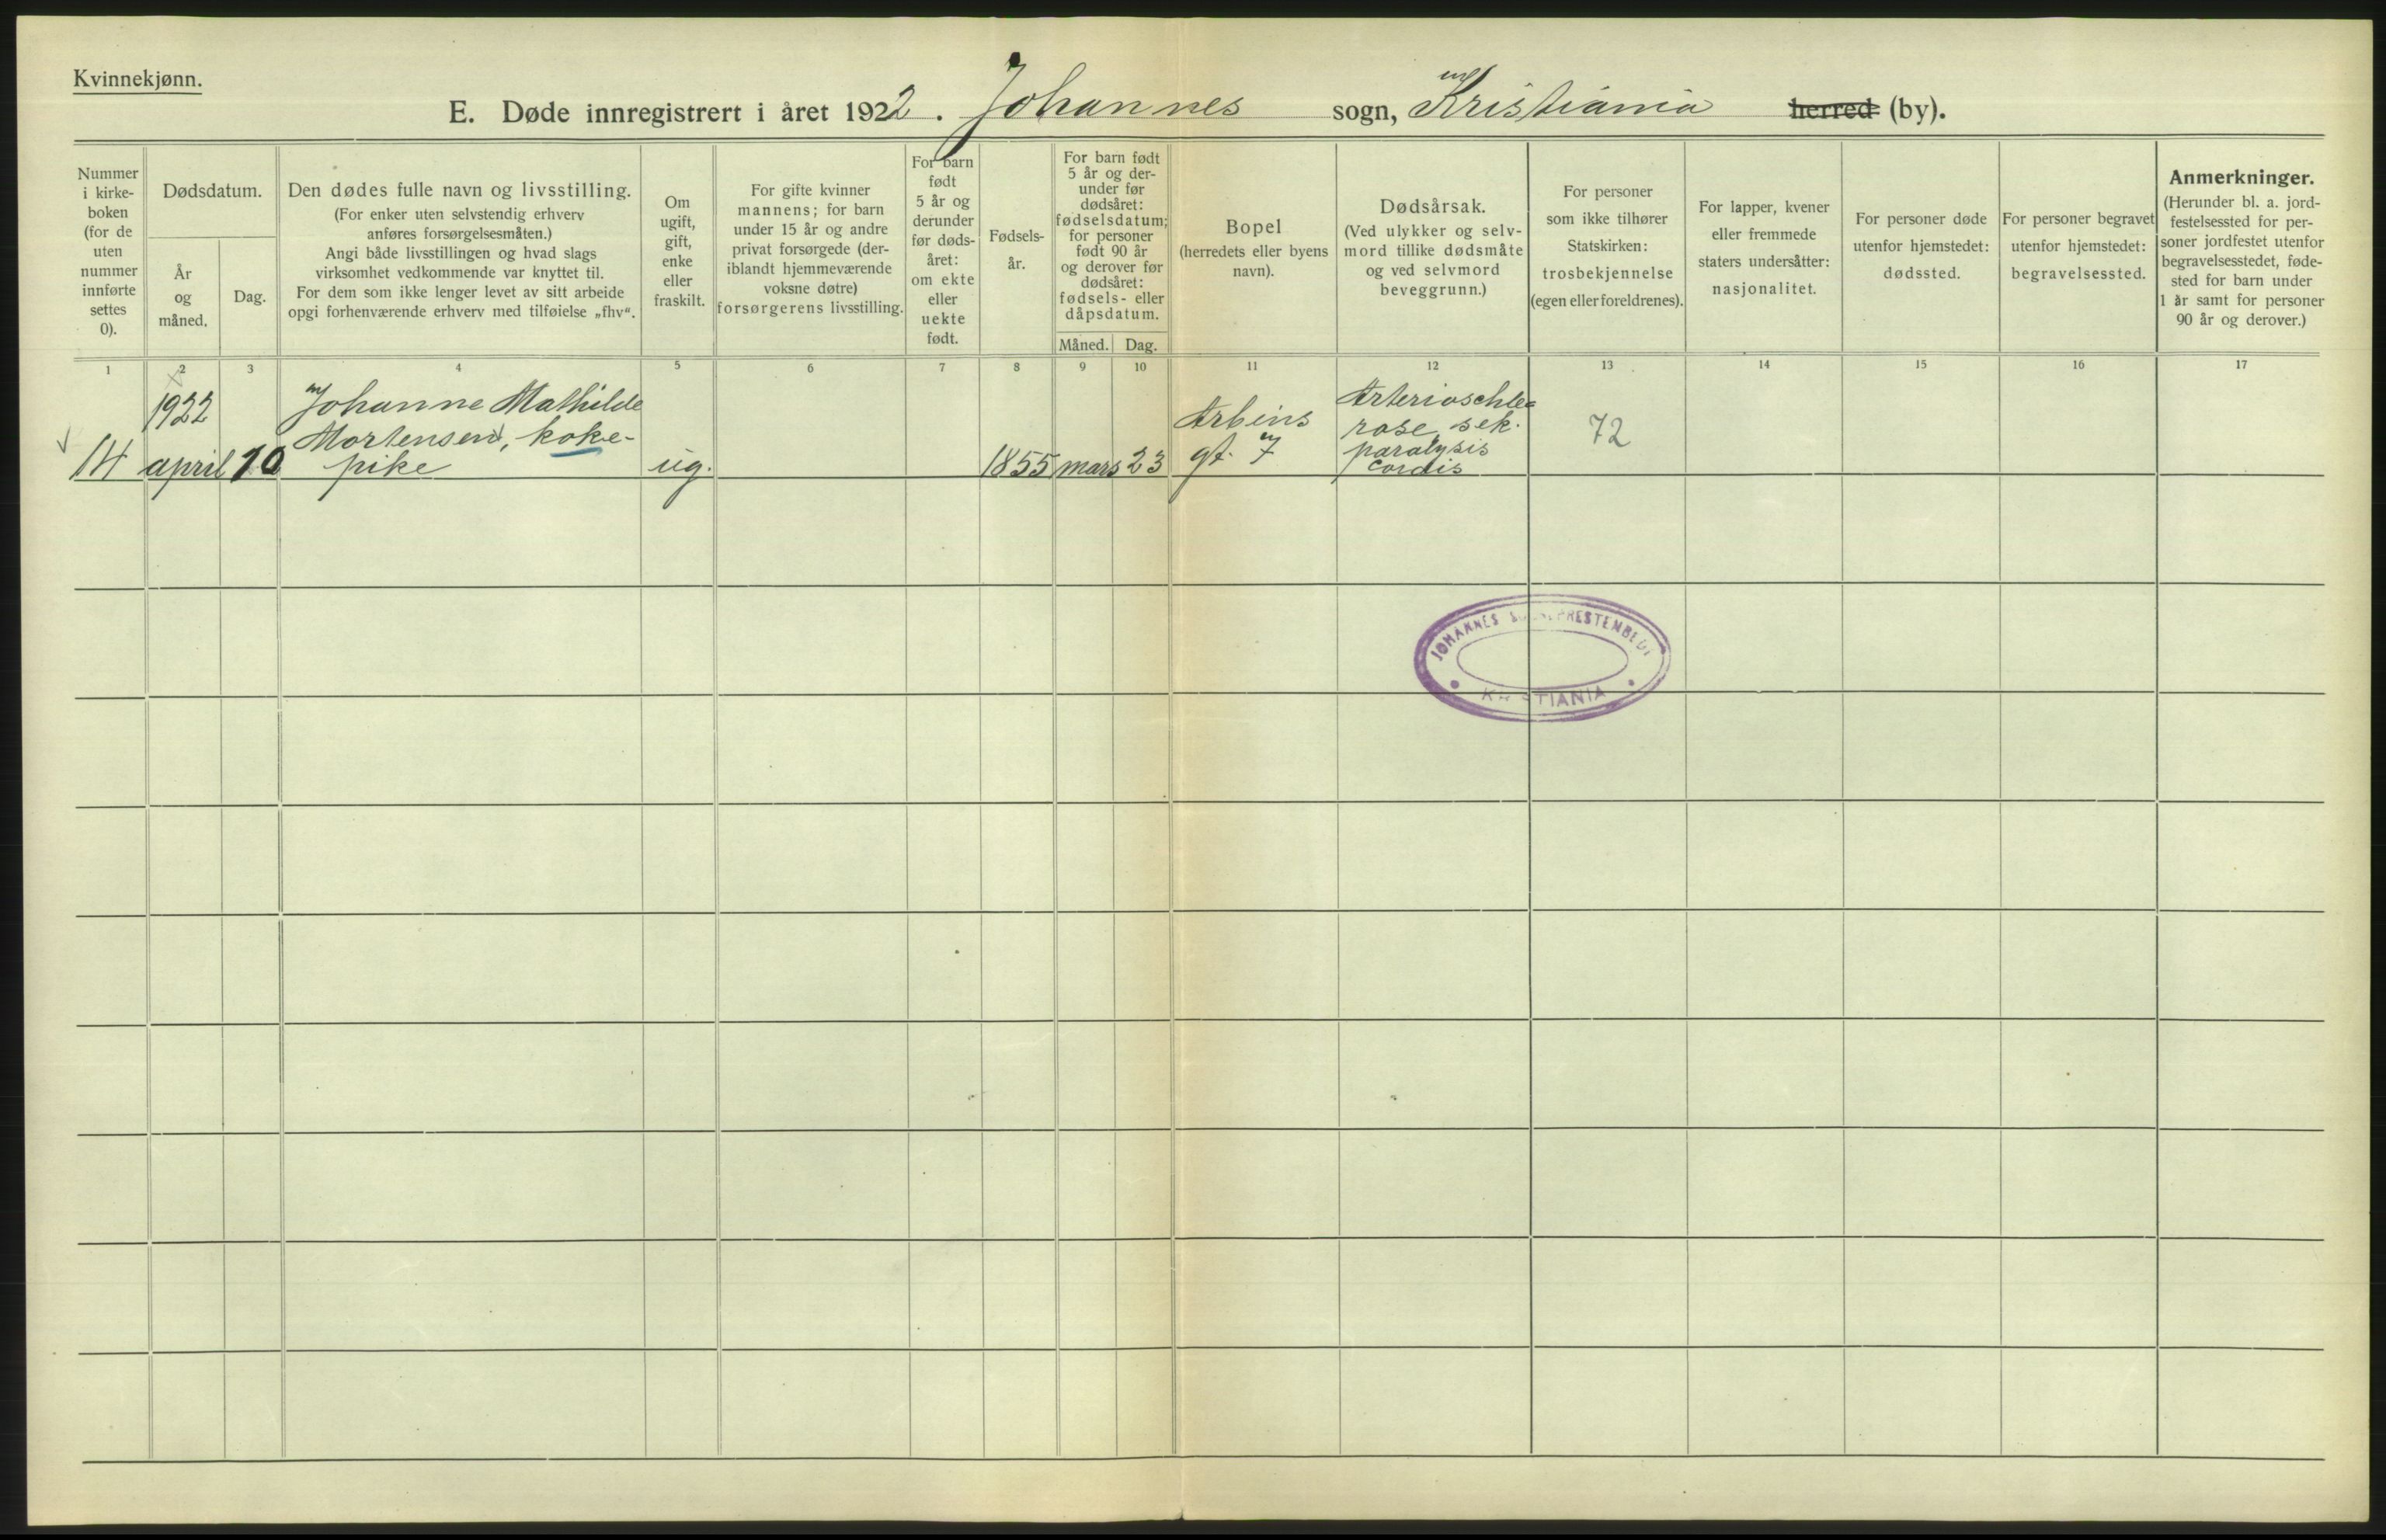 Kvinnekjønn.
E. Døde innregistrert i året 1922. Johannes sogn, Kristiania herred (by).
Nummer
i kirke-
boken
(for de
uten
nummer
innførte
settes
0).
Dødsdatum.
År
og
måned.
Dag.
Den dødes fulle navn og livsstilling.
(For enker uten selvstendig erhverv
anføres forsørgelsesmåten.)
Angi både livsstillingen og hvad slags
virksomhet vedkommende var knyttet til.
For dem som ikke lenger levet av sitt arbeide
opgi forhenværende erhverv med tilføielse „fhv“.
Om
ugift,
gift,
enke
eller
fraskilt.
For gifte kvinner
mannens; for barn
under 15 år og andre
privat forsørgede (der-
iblandt hjemmeværende
voksne døtre)
forsørgerens livsstilling.
For barn
født
5 år og
derunder
før døds-
året:
om ekte
eller
uekte
født.
Fødsels-
år.
For barn født
5 år og der-
under før
dødsåret:
fødselsdatum;
for personer
født 90 år
og derover før
dødsåret:
fødsels- eller
dåpsdatum.
Måned. Dag.
Bopel
(herredets eller byens
navn).
Dødsårsak.
(Ved ulykker og selv-
mord tillike dødsmåte
og ved selvmord
beveggrunn.)
For personer
som ikke tilhører
Statskirken:
trosbekjennelse
(egen eller foreldrenes).
For lapper, kvener
eller fremmede
staters undersåtter:
nasjonalitet.
For personer døde
utenfor hjemstedet:
dødssted.
For personer begravet
utenfor hjemstedet:
begravelsessted.
Anmerkninger.
(Herunder bl. a. jord-
festelsessted for per-
soner jordfestet utenfor
begravelsesstedet, føde-
sted for barn under
1 år samt for personer
90 år og derover.)
1 2 3 4 5 6 7 8 9 10 11 12 13 14 15 16 17
14
1922
april
10
Johanne Mathilde
Mortensen, koke-
pike
ug.
1855
mars
23
Arbins
gt. 7
Arterioschle-
rose, sek.
paralysis
cordis
72
JOHANNES SOGNEPRESTEMBEDE
KRISTIANIA